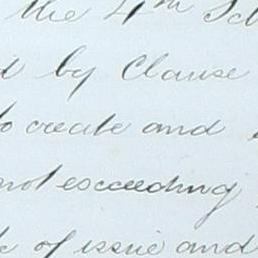 the 4th Sch
d by Clause
to create and
not exceeding
of issue and